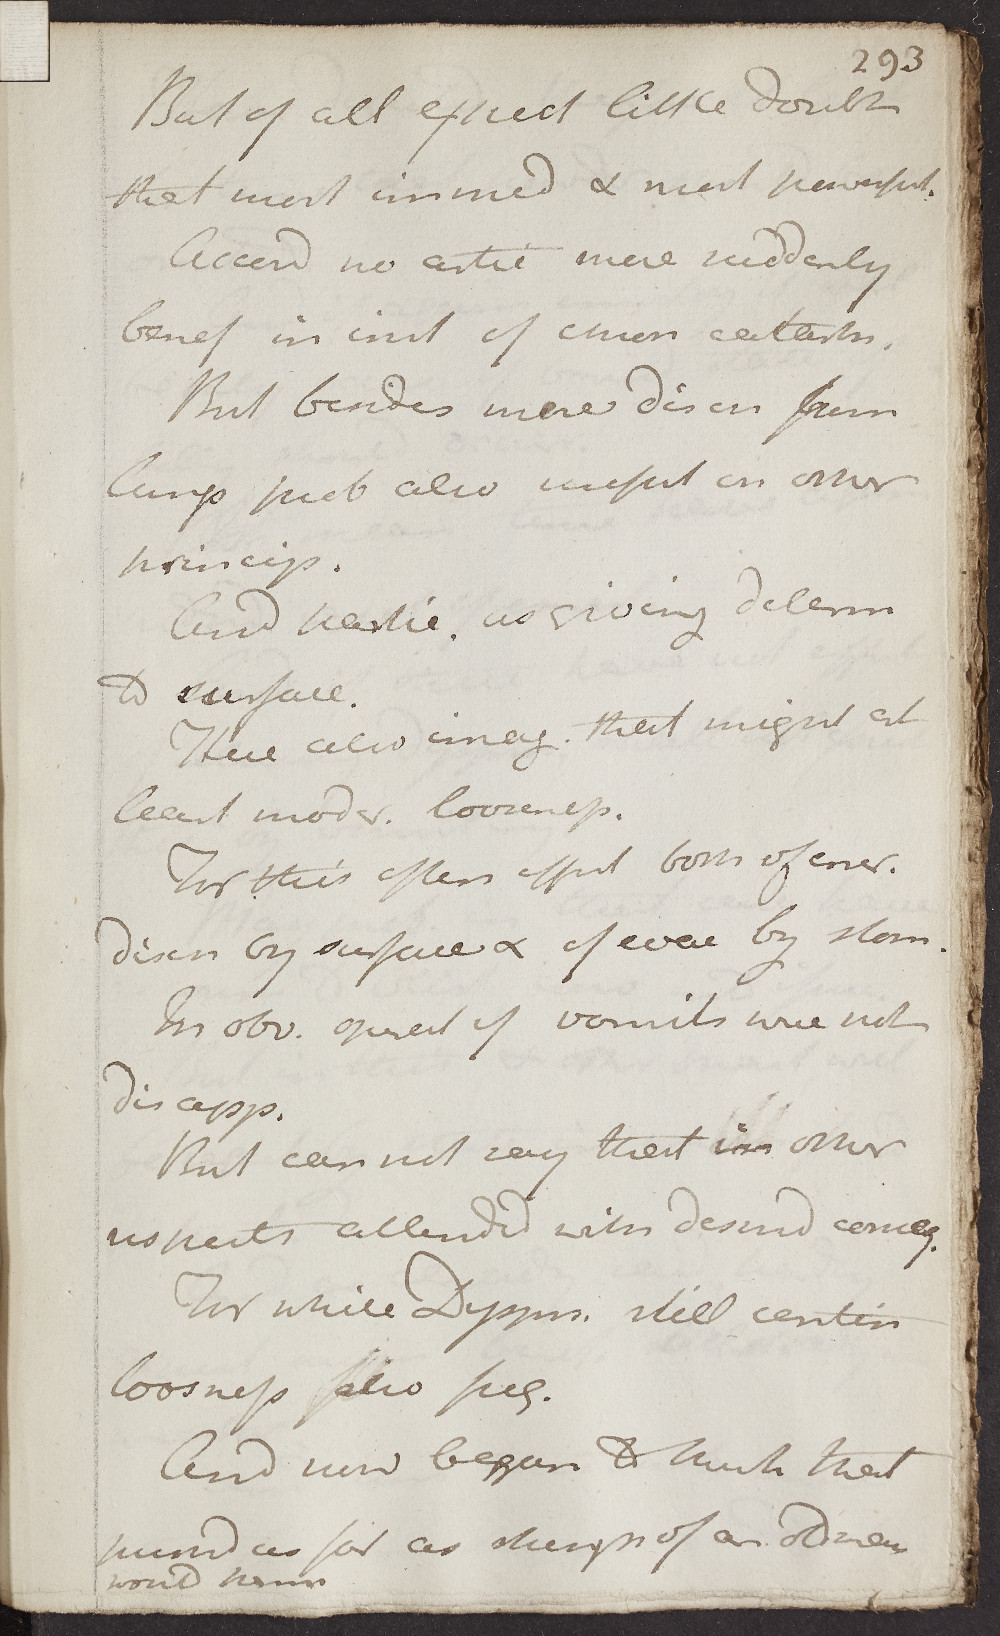 293
But of all effect little doubt
that most immed & most powerful.
Accord no artic more suddenly
benef in inst of chron catarrh.
But besides mere disch from
lungs prob also useful on other
princip.
And partic. as giving determ
to surface.
Here also imag. that might at
least moder. loosness.
For this often effect both of incr.
disch by surface & of evac by stom.
In obv. operat of vomits were not
disapp.
But can not say that in other
respects attended with desird conseq.
For while Dyspn. still contin
loosness also freq.
And now began to think that
pursud as far as strength of an old man
would permit